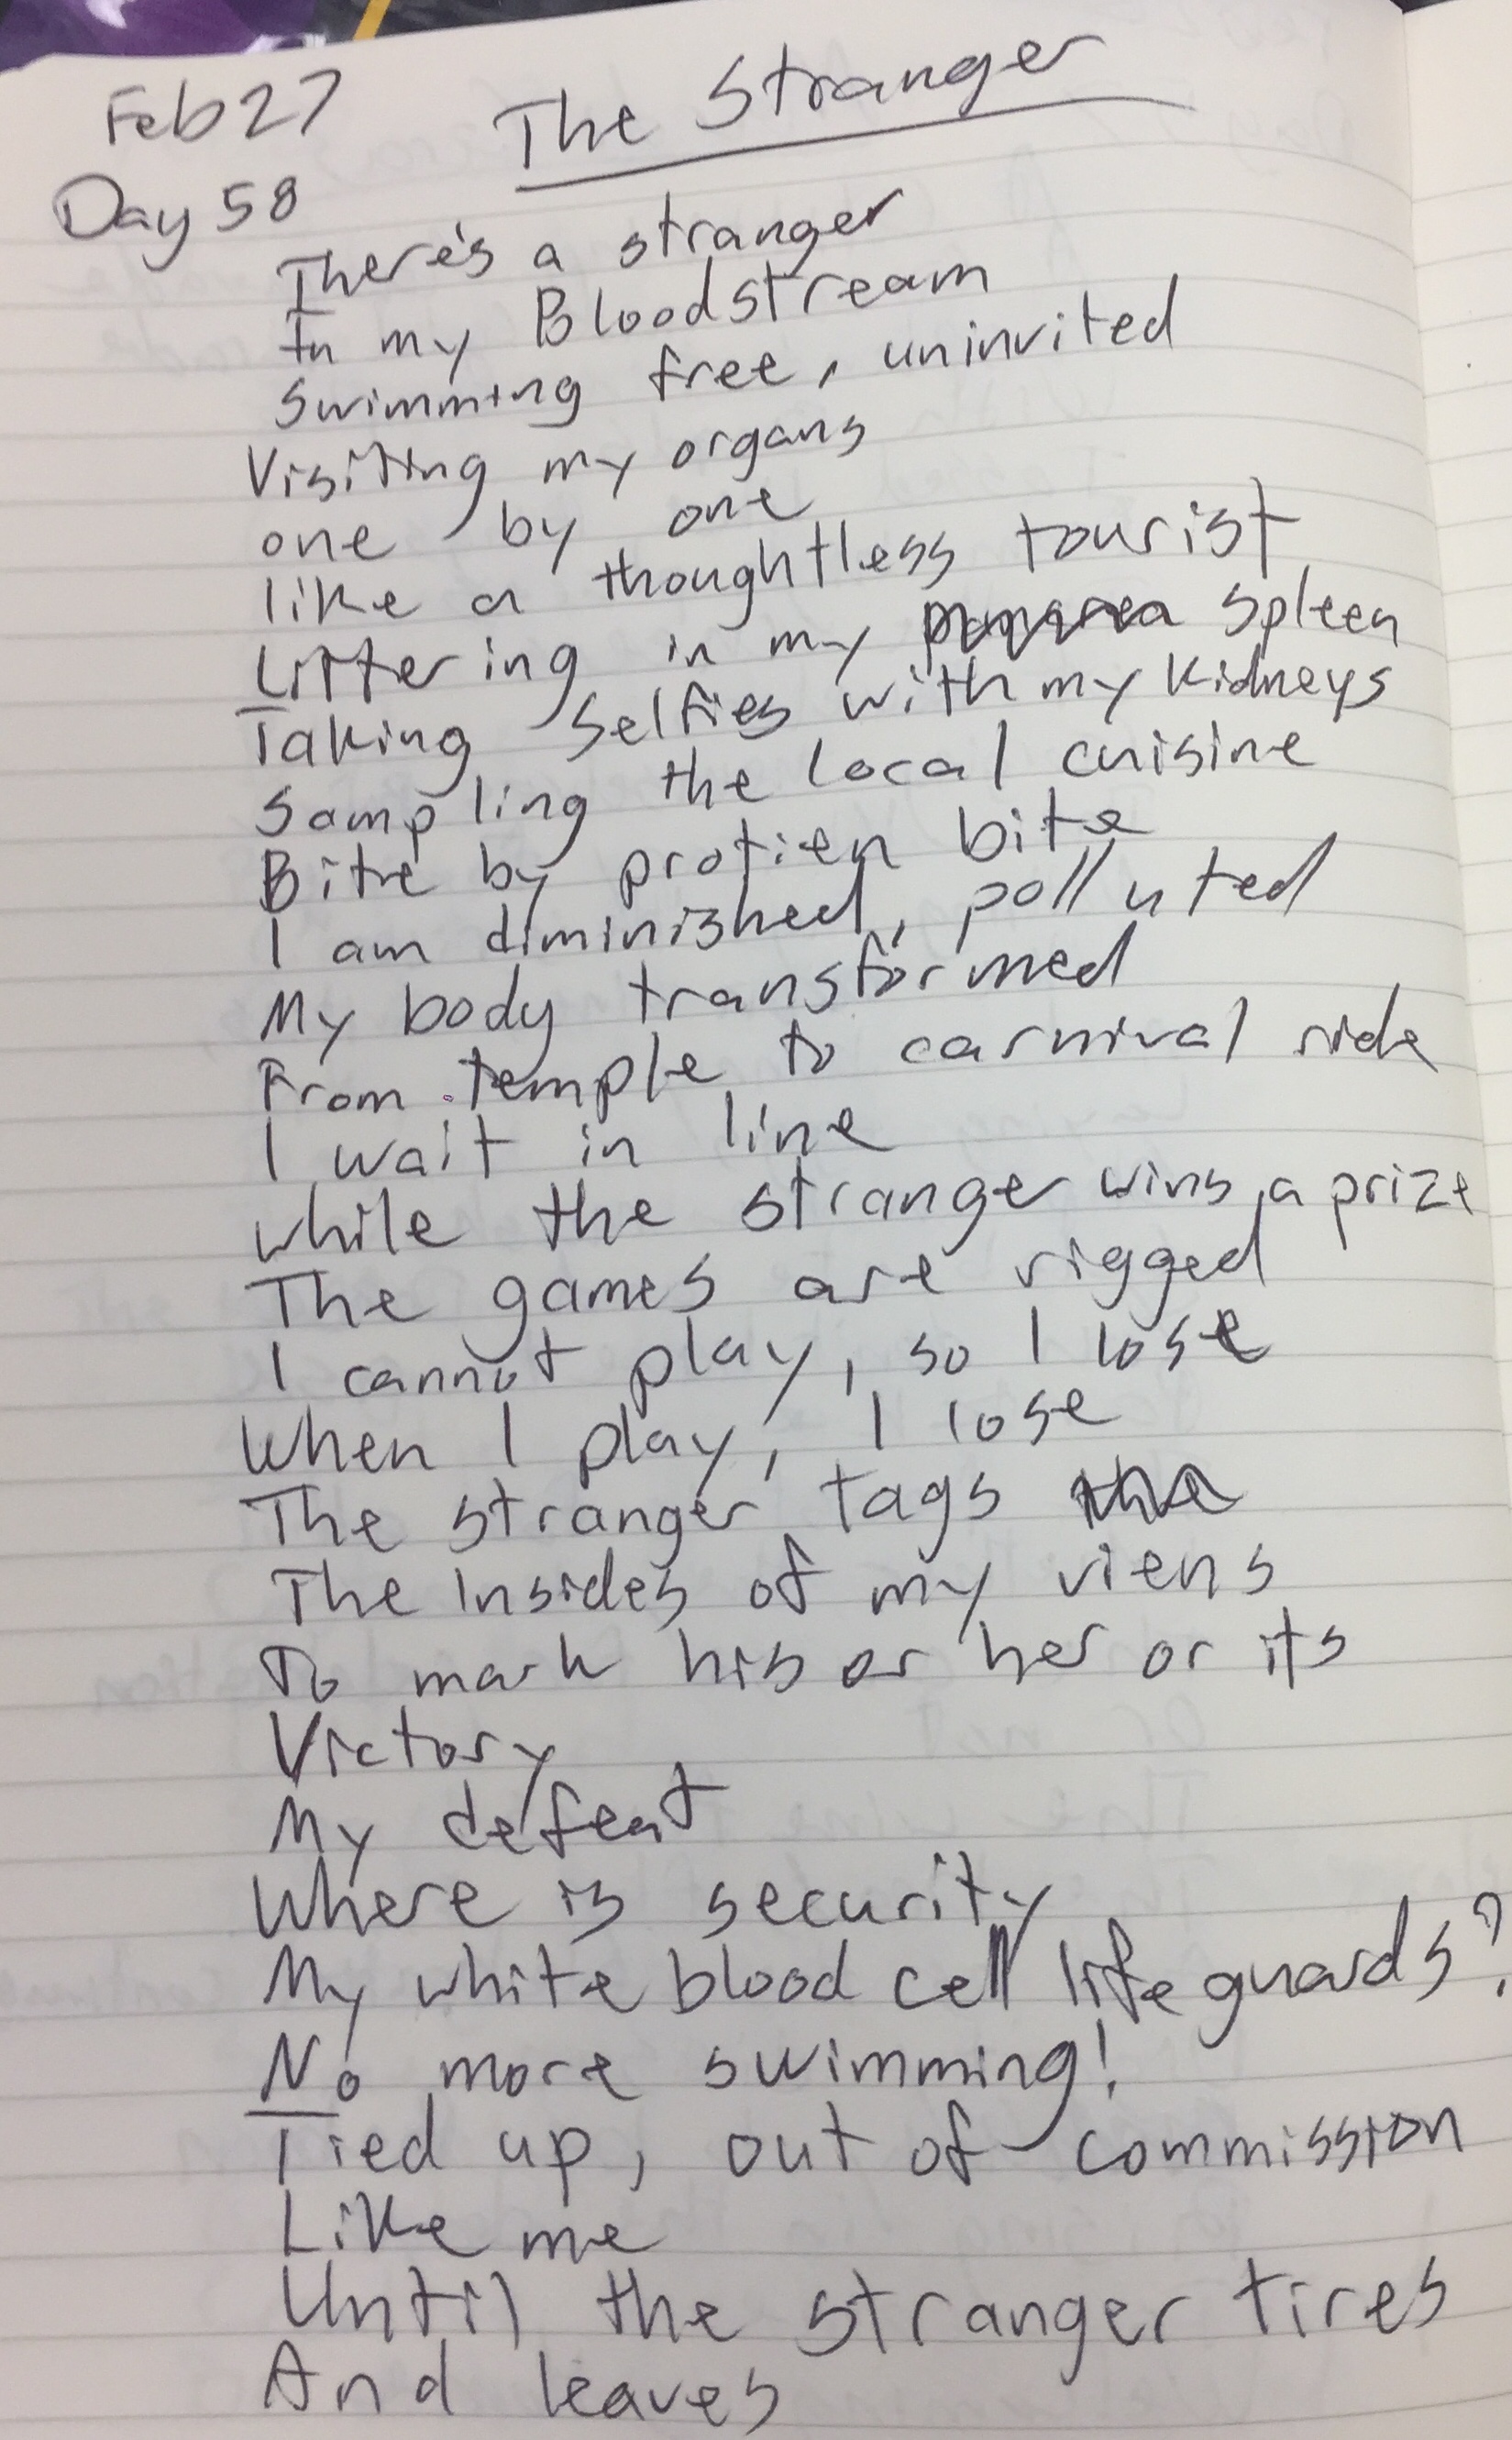 Feb 27
The Stranger
Day 58
There's a stranger
In my Bloodstream
Swimming free, uninvited
Visiting my organs
one by one
like a thoughtless tourist
Littering in my spleen
Taking selfies with my kidneys
Sampling the local cuisine
Bite by protien bite
I am diminished, polluted
My body transformed
From temple to carnival ride
I wait in line
while the stranger wins a prize
The games are rigged
I cannot play, so I lose
When I play, I lose
The stranger tags the
The Insides of my viens
To mark his or her or its
Victory
My defeat
Where is security
My white blood cell lifeguards?
No more swimming!
Tied up, out of commission
Like me
Until the stranger tires
And leaves